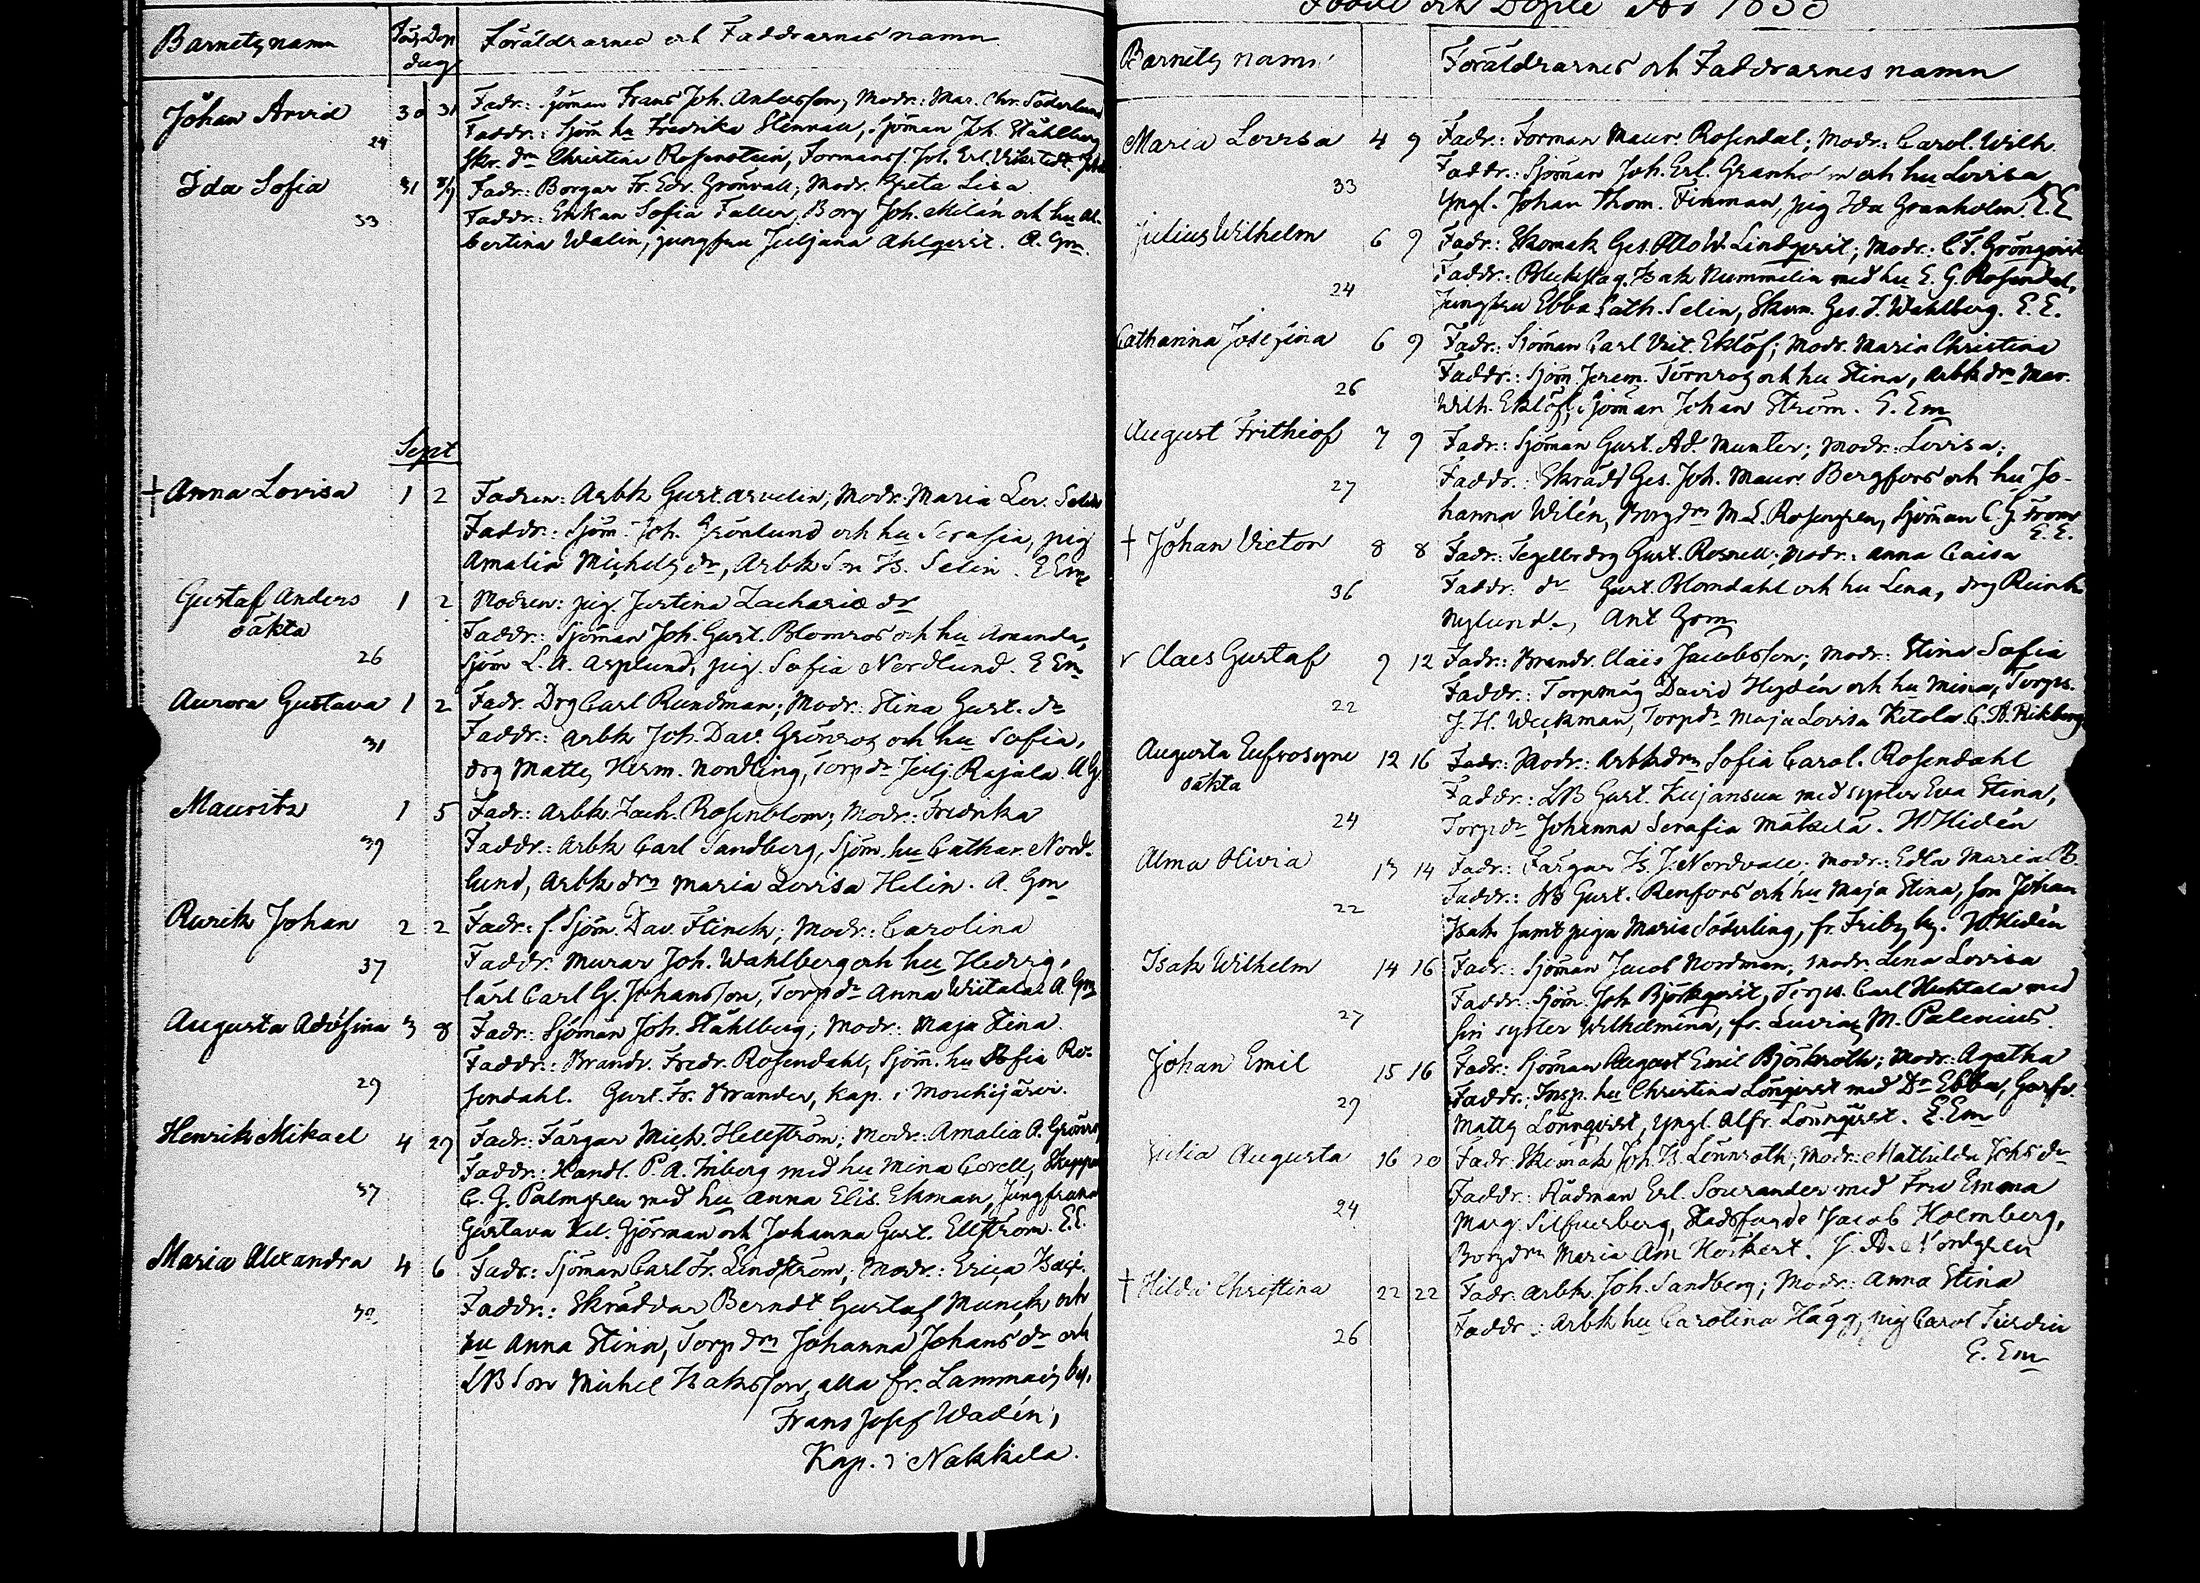 Barnets namn Föd. Dop dag Föräldrarnes och Faddrarnes namn
Johan Arvid 30 31 Fadr: Sjöman Frans Joh. Andersson; Modr: Mar. Chr. Söderlund
24 Faddr: Sjöm hu Fredrika Stenvall, Sjöman Joh. Ståhlberg
Skr. drn Christina Rosenstein, Formans s. Joh. Erl.
Ida Sofia 31 8/9 Fadr: Borgar Fr. Edv. Grönvall; Modr. Greta Lisa
33 Faddr: Enkan Sofia Faller, Borg Joh. Milén och hu Al-
bertina Walin, jungfru Juljana Ahlqvist. A. Gm.
Sept
† Anna Lovisa 1 2 Fadren: Arbk Gust. Arvelin; Modr: Maria Lov. Selin
Faddr: Sjöm. Joh. Grönlund och hu Serafia, pig
Amalia Michels dr, Arbk Sn Is. Selin. E Em
Gustaf Anders 1 2 Modren: pig. Justina Zachariæ dr
oäkta Faddr: Sjöman Joh. Gust. Blomros och hu Amanda,
26 Sjöm L. A. Asplund, pig. Sofia Nordlund. E Em
Aurora Gustava 1 2 Fadr. Drg Carl Rundman; Modr: Stina Gust. dr
31 Faddr: Arbk Joh. Dav. Grönros och hu Sofia,
drg Matts Herm. Nordling, Torp dr Julj. Rajala. A G
Mauritz 1 5 Fadr: Arbk Zach. Rosenblom; Modr: Fredrika
39 Faddr: Arbk Carl Sandberg, Sjöm. hu Cathar. Nord-
lund, Arbk drn Maria Lovisa Helin. A. Gm
Rurik Johan 2 2 Fadr: f. Sjöm. Dav. Flinck; Modr: Carolina
37 Faddr: Murar Joh. Wahlberg och hu Hedvig,
lärl Carl G. Johansson, Torp dr Anna Wiitala. A. Gm
Augusta Adolfina 3 8 Fadr: Sjöman Joh. Ståhlberg; Modr: Maja Stina
29 Faddr: Brandv. Fredr. Rosendahl, Sjöm. hu Sofia Ro-
sendahl. Gust. Fr. Brander, Kap. i Mouhijärvi.
Henrik Mikael 4 29 Fadr: Färgar Mich. Hellström; Modr: Amalia A. Grönros
37 Faddr: Handl. P. A. Inberg med hu Mina Corell, Skeppar
C. G. Palmgren med hu Anna Elis. Ekman, Jungfruna
Gustava Gjörman och Johanna Gust. Ellström. E.E.
Maria Alexandra 4 6 Fadr: Sjöman Carl Fr. Lindström; Modr: Erica
Faddr: Skräddar Berndt Gustaf Munck och
hu Anna Stina, Torp drn Johanna Johans dr och
LB Son Michel Isaksson, alla fr. Lammais by.
Frans Josef Wadén,
Kap. i Nakkila.
Födde och Döpte År 1855
Barnets namn Föräldrarnes och Faddrarnes namn
Maria Lovisa 4 9 Fadr: Forman Maur. Rosendal; Modr: Carol. Wilh.
33 Faddr: Sjöman Joh. Erl. Granholm och hu Lovisa
Yngl. Johan Thom. Finman, pig Ida Granholm. E.E
Julius Wilhelm 6 9 Fadr: Skomak Ges. Otto W. Lindqvist; Modr: C.F. Grönqvist
24 Faddr: Bleckslag. Isak Nummelin med hu E. G. Rosendal,
Jungfru Ebba Cath. Selin, Skom. Ges. J. Wahlberg. E. E.
Catharina Josefina 6 9 Fadr: Sjöman Carl Vict. Eklöf; Modr. Maria Christina
26 Faddr: Sjöm. Jerem. Törnros och hu Stina, Arbk drn Mar.
Wilh. Eklöf, Sjöman Johan Ström. E. Em
August Frithiof 7 9 Fadr: Sjöman Gust. Ad. Munter; Modr: Lovisa;
27 Faddr: Skrädd Ges. Joh. Maur Bergfors och hu Jo-
hanna Wilén, Borg drn M. L. Rosengren, Sjöman C. G. From
E. E.
† Johan Victor 8 8 Fadr: Tegelbr drg Gust. Rosnell; Modr: Anna Caisa
36 Faddr: dr Gust. Blomdahl och hu Lena, drg Reinh.
Nylund, Ant Gom
v Claes Gustaf 9 12 Fadr: Brandv. Claës Jacobsson; Modr: Stina Sofia
22 Faddr: Torpmåg David Hydén och hu Mina, Torps.
J. H. Weckman, Torp dr Maja Lovisa Kitola. C. A. Rikberg
Augusta Eufrosyne 12 16 Fadr: Modr: Arbk drn Sofia Carol. Rosendahl
oäkta Faddr: LB Gust. Kujansuu med syster Eva Stina,
24 Torp dr Johanna Serafia Mäkelä. W Hidén
Alma Olivia 13 14 Fadr: Färgar Is. J. Nordvall; Modr: Edla Maria B.
22 Faddr: NB Gust. Renfors och hu Maja Stina, son Johan
Isak samt piga Maria Söderling, fr. Friby by. W. Hidén
Isak Wilhelm 14 16 Fadr: Sjöman Jacob Nordman; Modr. Lena Lovisa
27 Faddr: Sjöm. Joh. Björkqvist, Torps. Carl Huhtala med
sin syster Wilhelmina, fr. Luvia, M. Palenius.
Johan Emil 15 16 Fadr: Sjöman August Emil Björkroth; Modr: Agatha
29 Faddr: Insp. hu Christina Lönqvist med Dr Ebba, Garfv.
Matts Lönnqvist, Yngl. Alfr. Lönnqvist. E. Em
Julia Augusta 16 20 Fadr: Skomak Joh. Is. Lönnroth; Modr: Mathilda Johs dr
24 Faddr: Rådman Erl. Sourander med Fru Emma
Marg. Silfverberg, Stadsfisc Jacob Holmberg,
Borg drn Maria Am Höckert. J. A. Nordgren
† Hilda Christina 22 22 Fadr: Arbk Joh. Sandberg; Modr: Anna Stina
26 Faddr: Arbk hu Carolina Hägg, pig Carol
E. Em